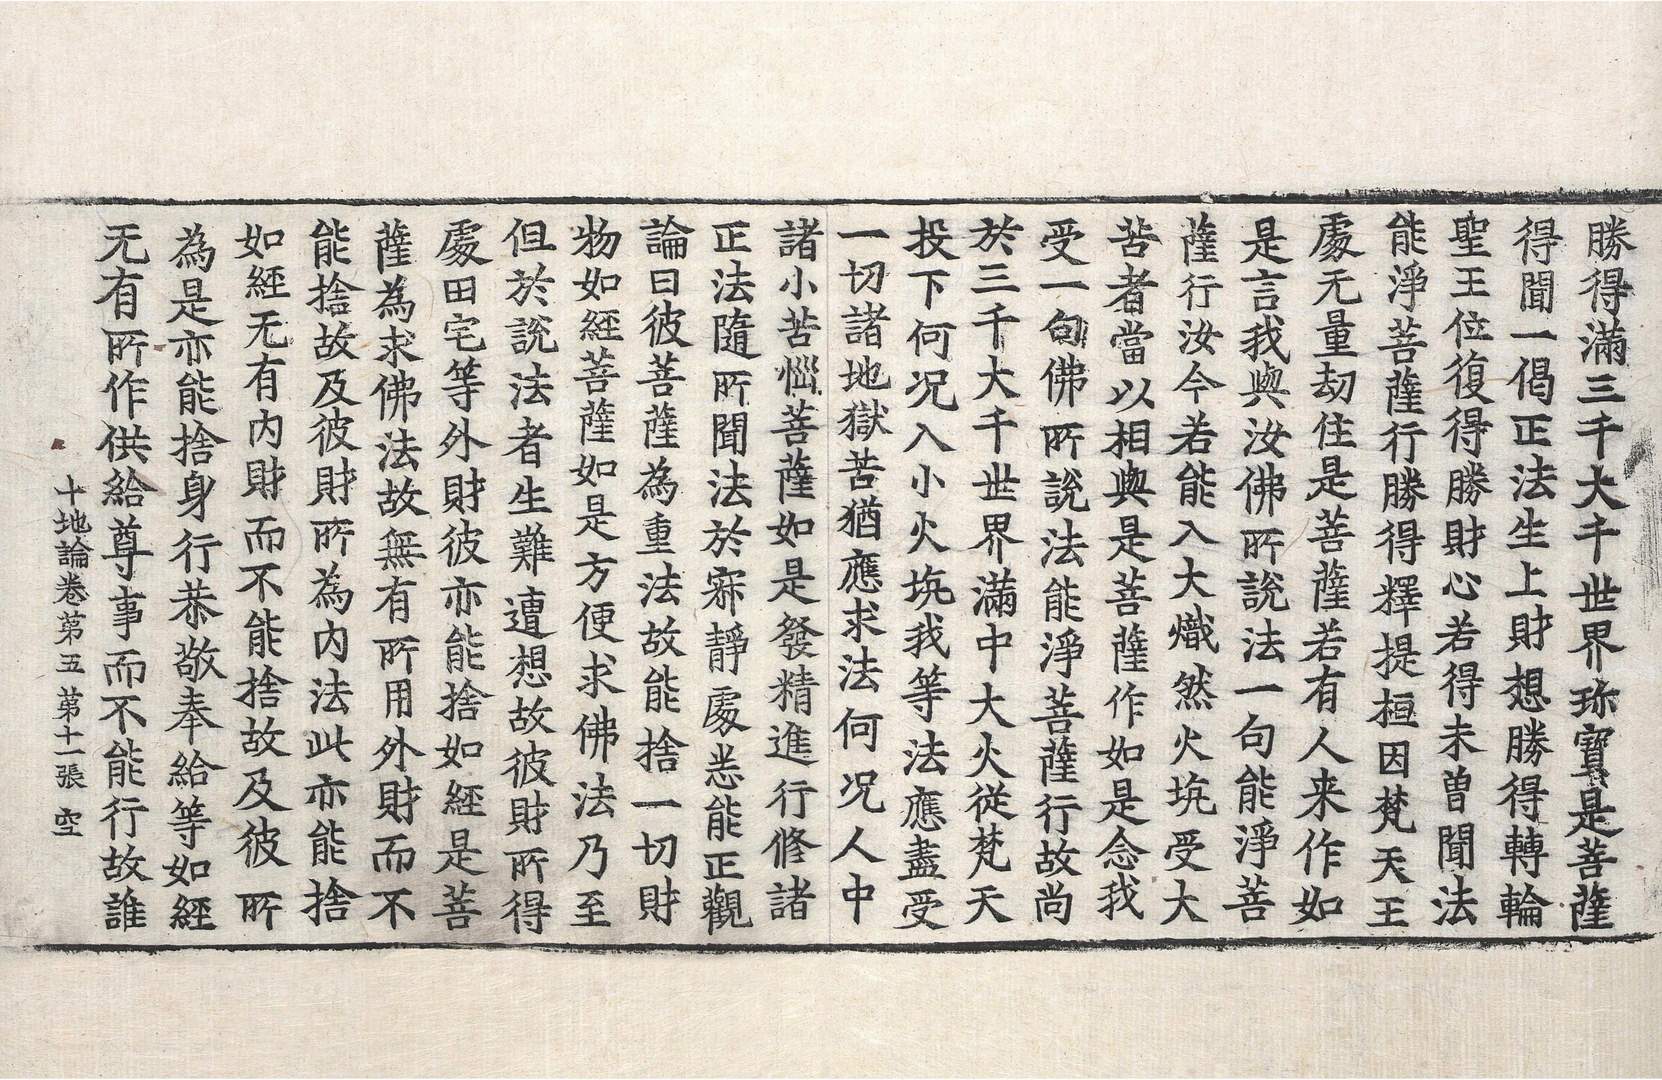 勝得滿三千大千世界珎寶是菩薩
得聞一偈正法生上財想勝得轉輪
聖王位復得勝財心若得未曾聞法
能淨菩薩行勝得釋提桓因梵天王
處无量劫住是菩薩若有人来作如
是言我與汝佛所說法一句能淨菩
薩行汝今若能入大熾然火坑受大
苦者當以相與是菩薩作如是念我
受一句佛所說法能淨菩薩行故尚
於三千大千世界滿中大火從梵天
投下何況入小火坑我等法應盡受
一切諸地獄苦猶應求法何況人中
諸小苦惱菩薩如是發精進行修諸
正法隨所聞法於寂靜處悉能正觀
論曰彼菩薩為重法故能捨一切財
物如經菩薩如是方便求佛法乃至
但於說法者生難遭想故彼財所得
處田宅等外財彼亦能捨如經是菩
薩為求佛法故無有所用外財而不
能捨故及彼財所為內法此亦能捨
如經无有內財而不能捨故及彼所
為是亦能捨身行恭敬奉給等如經
无有所作供給尊事而不能行故誰
十地論卷第五 第十一張 空